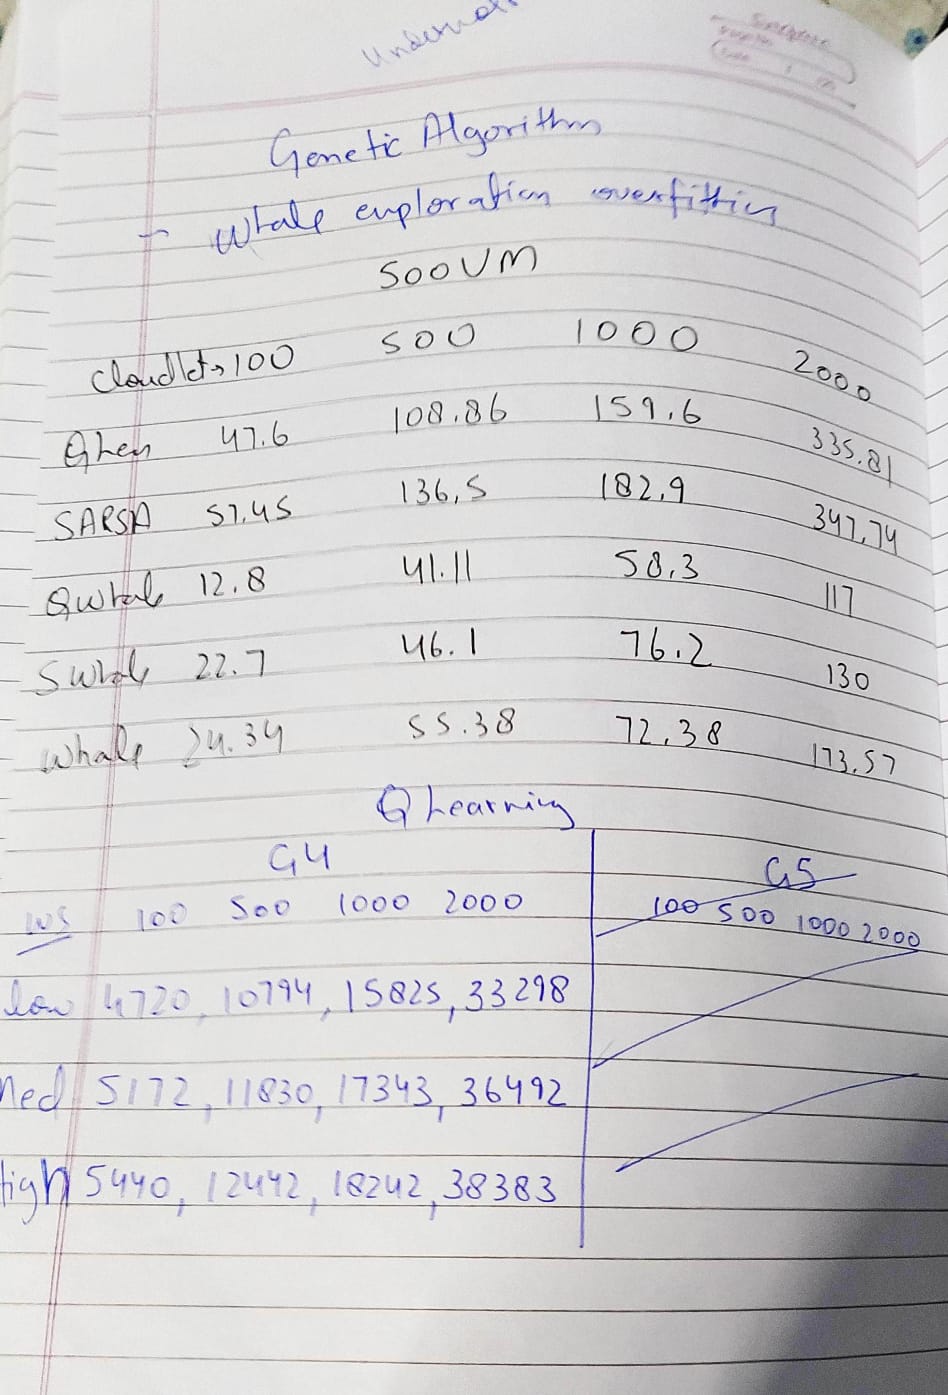 Genetic Algorithm
- Whale exploration overfitting
500 VM
Cloudlets 100 500 1000 2000
47.6 108.86 159.6 335.81
SARSA 57.45 136.5 182.9 347.74
Qwhale 12.8 41.11 58.3 117
Swhale 22.7 46.1 76.2 130
Whale 24.34 55.38 72.38 173.57
Q Learning
G4 G5
WS 100 500 1000 2000 100 500 1000 2000
low 4720, 10794, 15825, 33298
Med 5172, 11830, 17343, 36492
High 5440, 12442, 18242, 38383